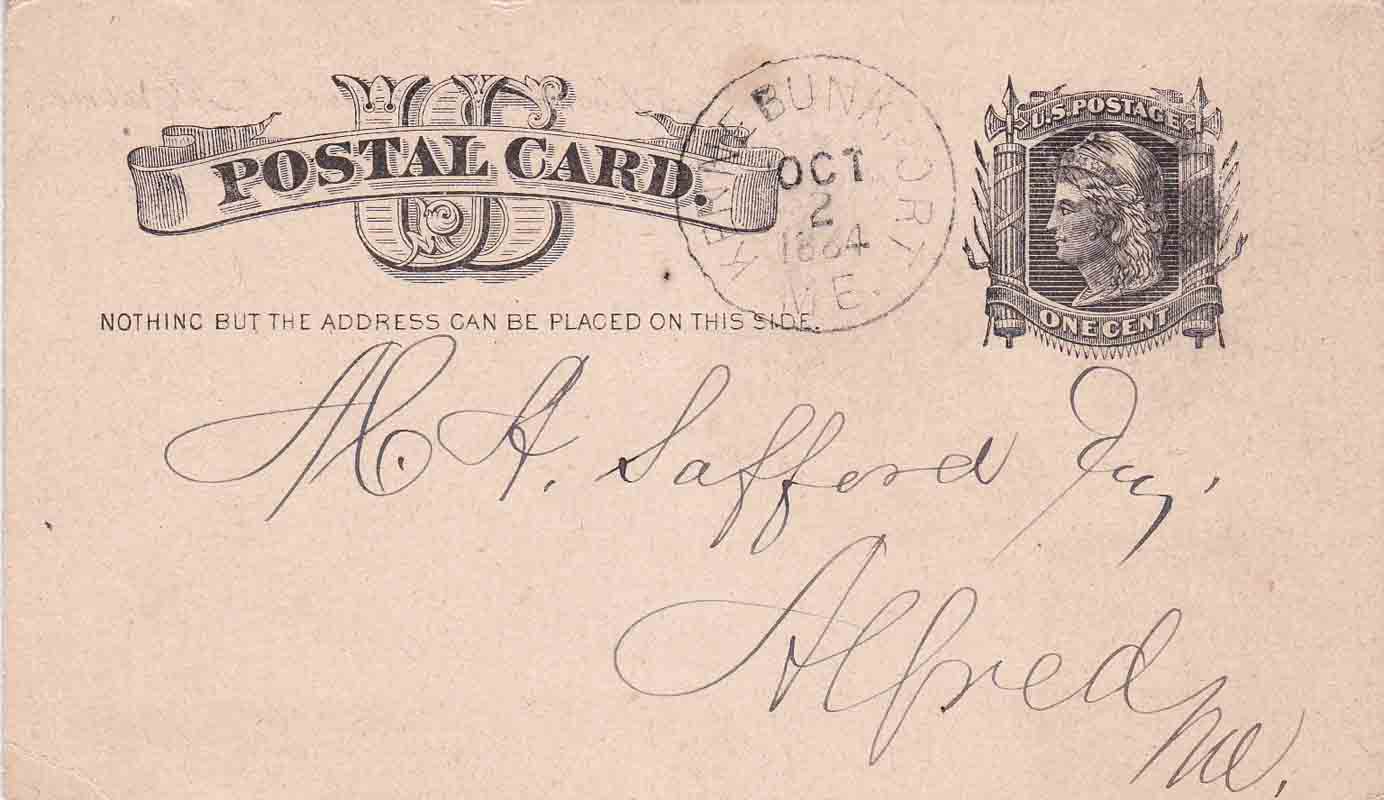 US
POSTAL CARD.
KENNEBUNKPORT
OCT
2
1884
ME.
U.S. POSTAGE
ONE CENT
NOTHING BUT THE ADDRESS CAN BE PLACED ON THIS SIDE.
H. A. Safford Esq.
Alfred
Me.